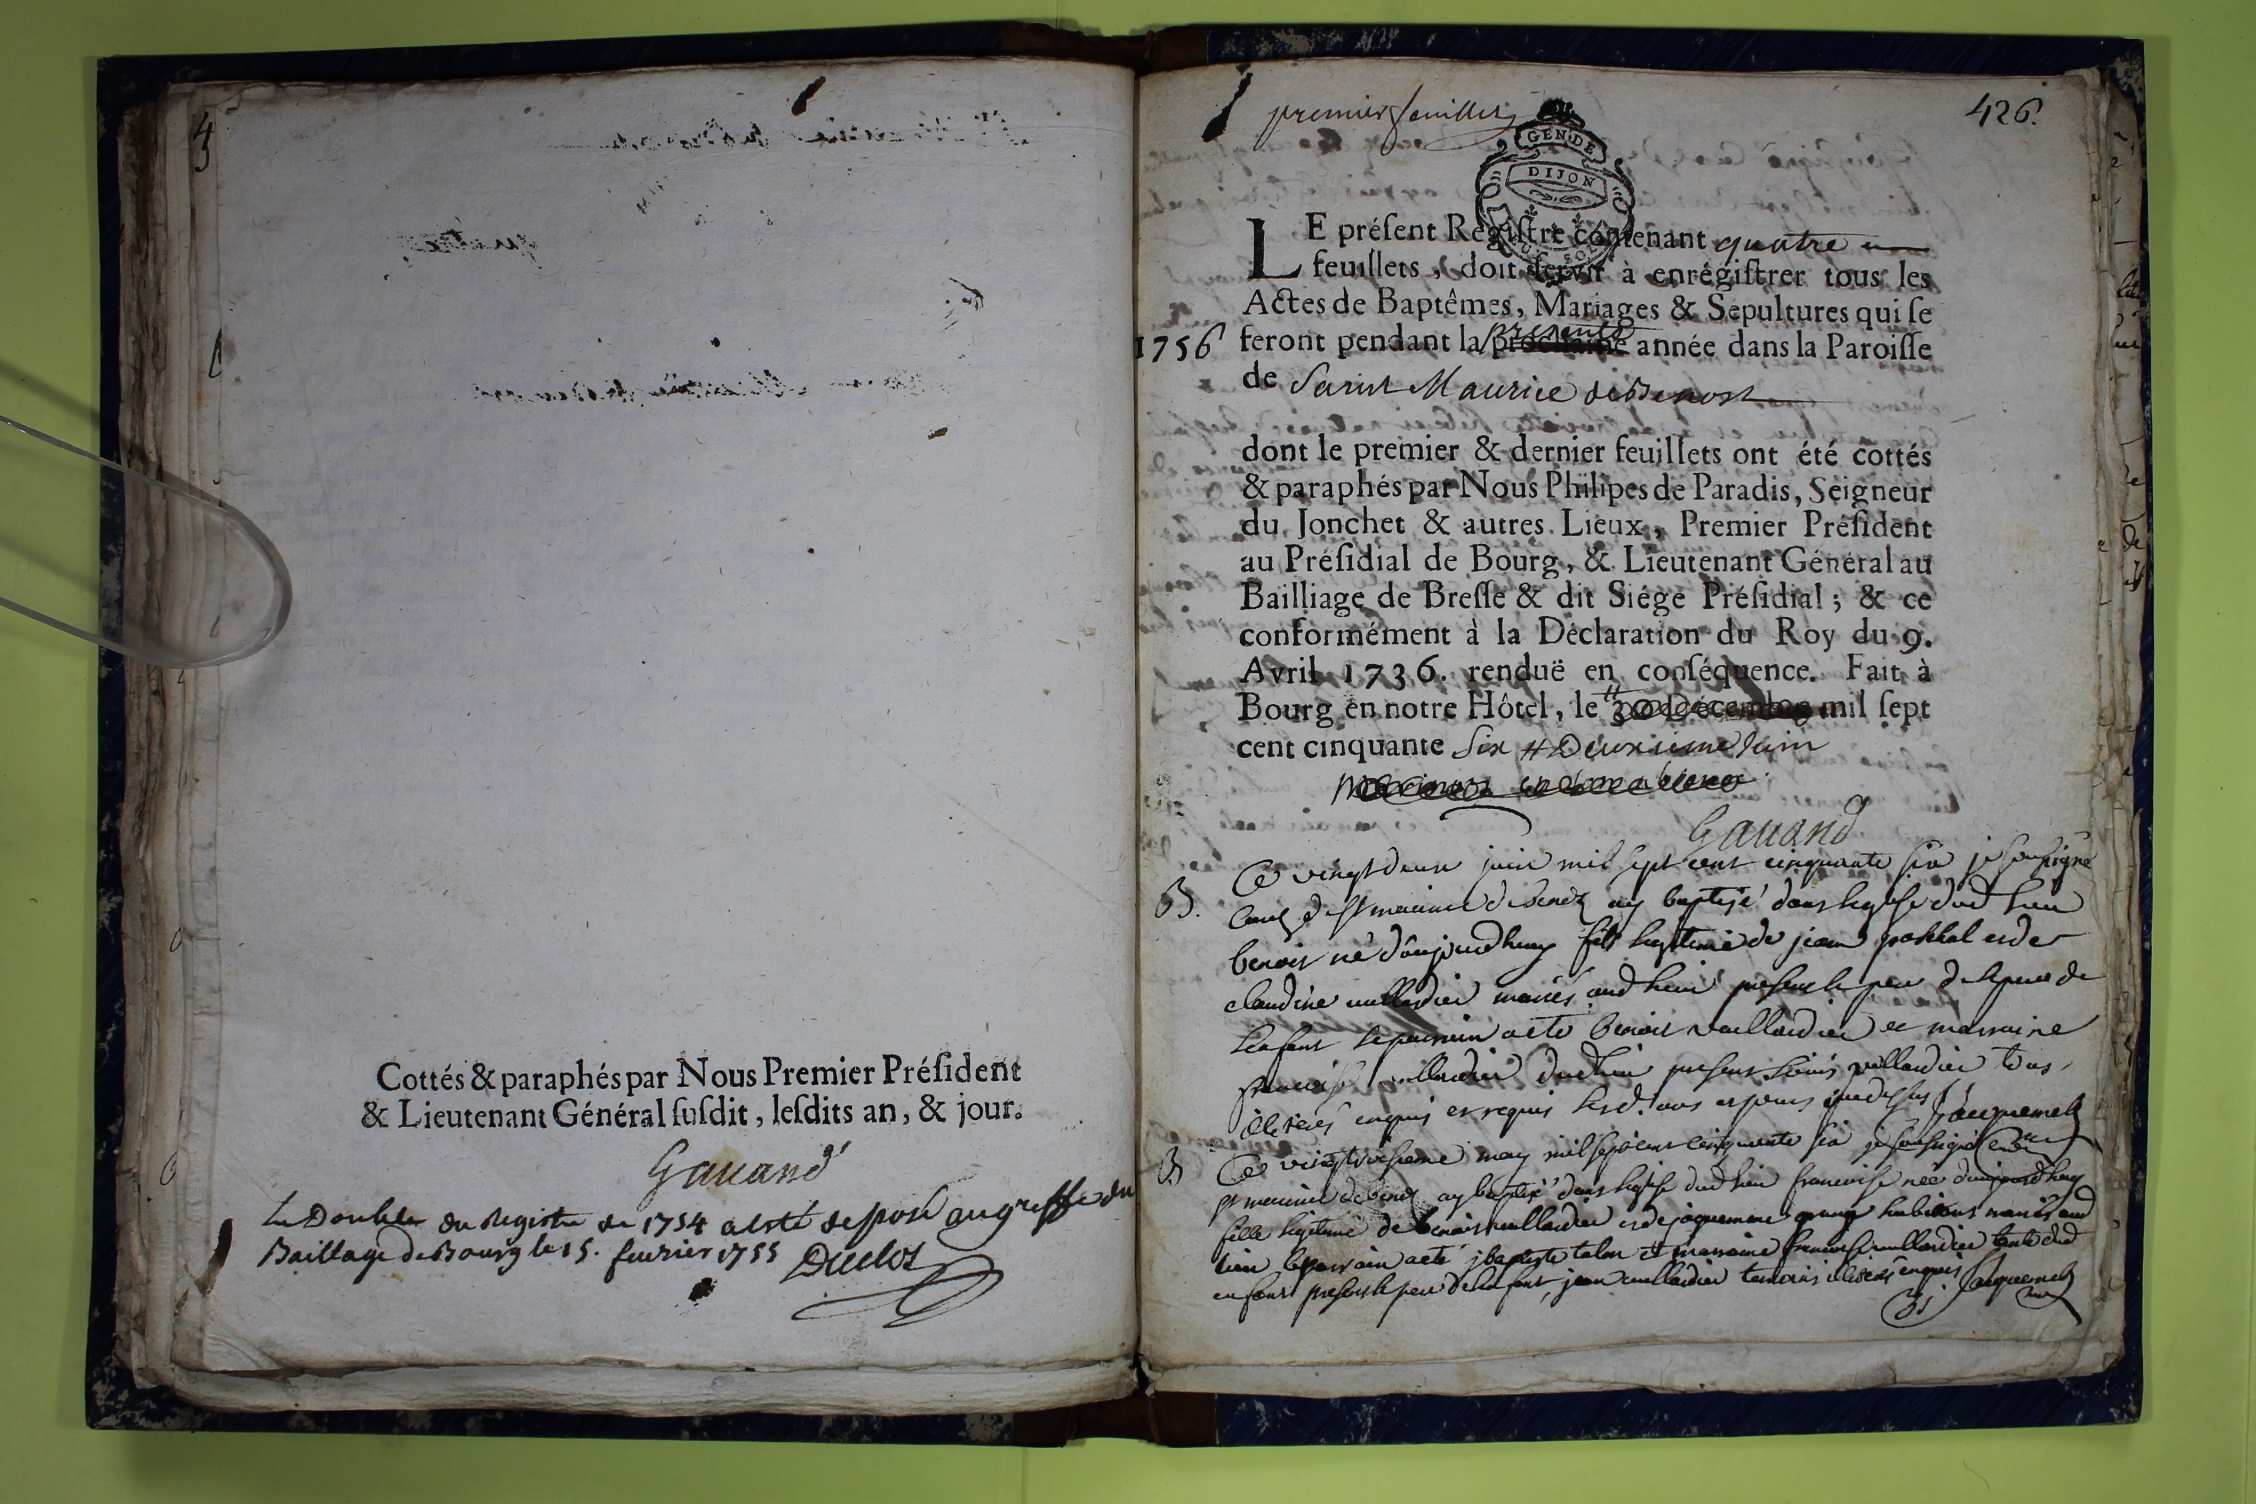 Cottés & paraphés par Nous Premier Préſident
& Lieutenant Général ſuſdit, leſdits an, & jour.
Gauand
Le Double du Registre de 1754 a esté deposé au greffe du
Bailliage de Bourg le 15. feuvrier 1755 Duclos
premier feuillet
426.
GEN. DE
DIJON
LE préſent Regiſtre contenant quatre
feuillets, doit ſervir à enrégiſtrer tous les
Actes de Baptêmes, Mariages & Sépultures qui ſe
1756 feront pendant la prochaine presente année dans la Paroiſſe
de Saint Maurice de Benost
dont le premier & dernier feuillets ont été cottés
& paraphés par Nous Philipes de Paradis, Seigneur
du Jonchet & autres Lieux, Premier Préſident
au Préſidial de Bourg, & Lieutenant Général au
Bailliage de Breſſe & dit Siége Préſidial; & ce
conformément à la Déclaration du Roy du 9.
Avril 1736. renduë en conſéquence. Fait à
Bourg en notre Hôtel, le 30 Decembre mil ſept
cent cinquante Six # Deuxieme Juin
Gauand
B. Ce vingt deux juin mil sept cent cinquante six je soussigné
curé de st maurice de benost ay baptisé dans leglise dud lieu
benoit né d'aujourdhuy fils legitime de jean et de
claudine mariés aud lieu present le pere de
lenfant le parrain a eté benoit vuillardier et marraine
francoise vuillardier dud lieu present vuillardier tous
illiterés enquis et requis lesd. Jacquemet
B. Ce vingt troisieme may mil sept cent cinquante six je soussigné curé de
st maurice de benost ay baptisé dans leglise dud lieu francoise née d'aujourdhuy
fille legitime de benoit vuillardier et de jaquemine habitans mariés aud
lieu le parrain a eté jbaptiste et marraine francoise vuillardier tante dud
enfant present le pere de lenfant, jean vuillardier temoins illiterés enquis Jacquemet